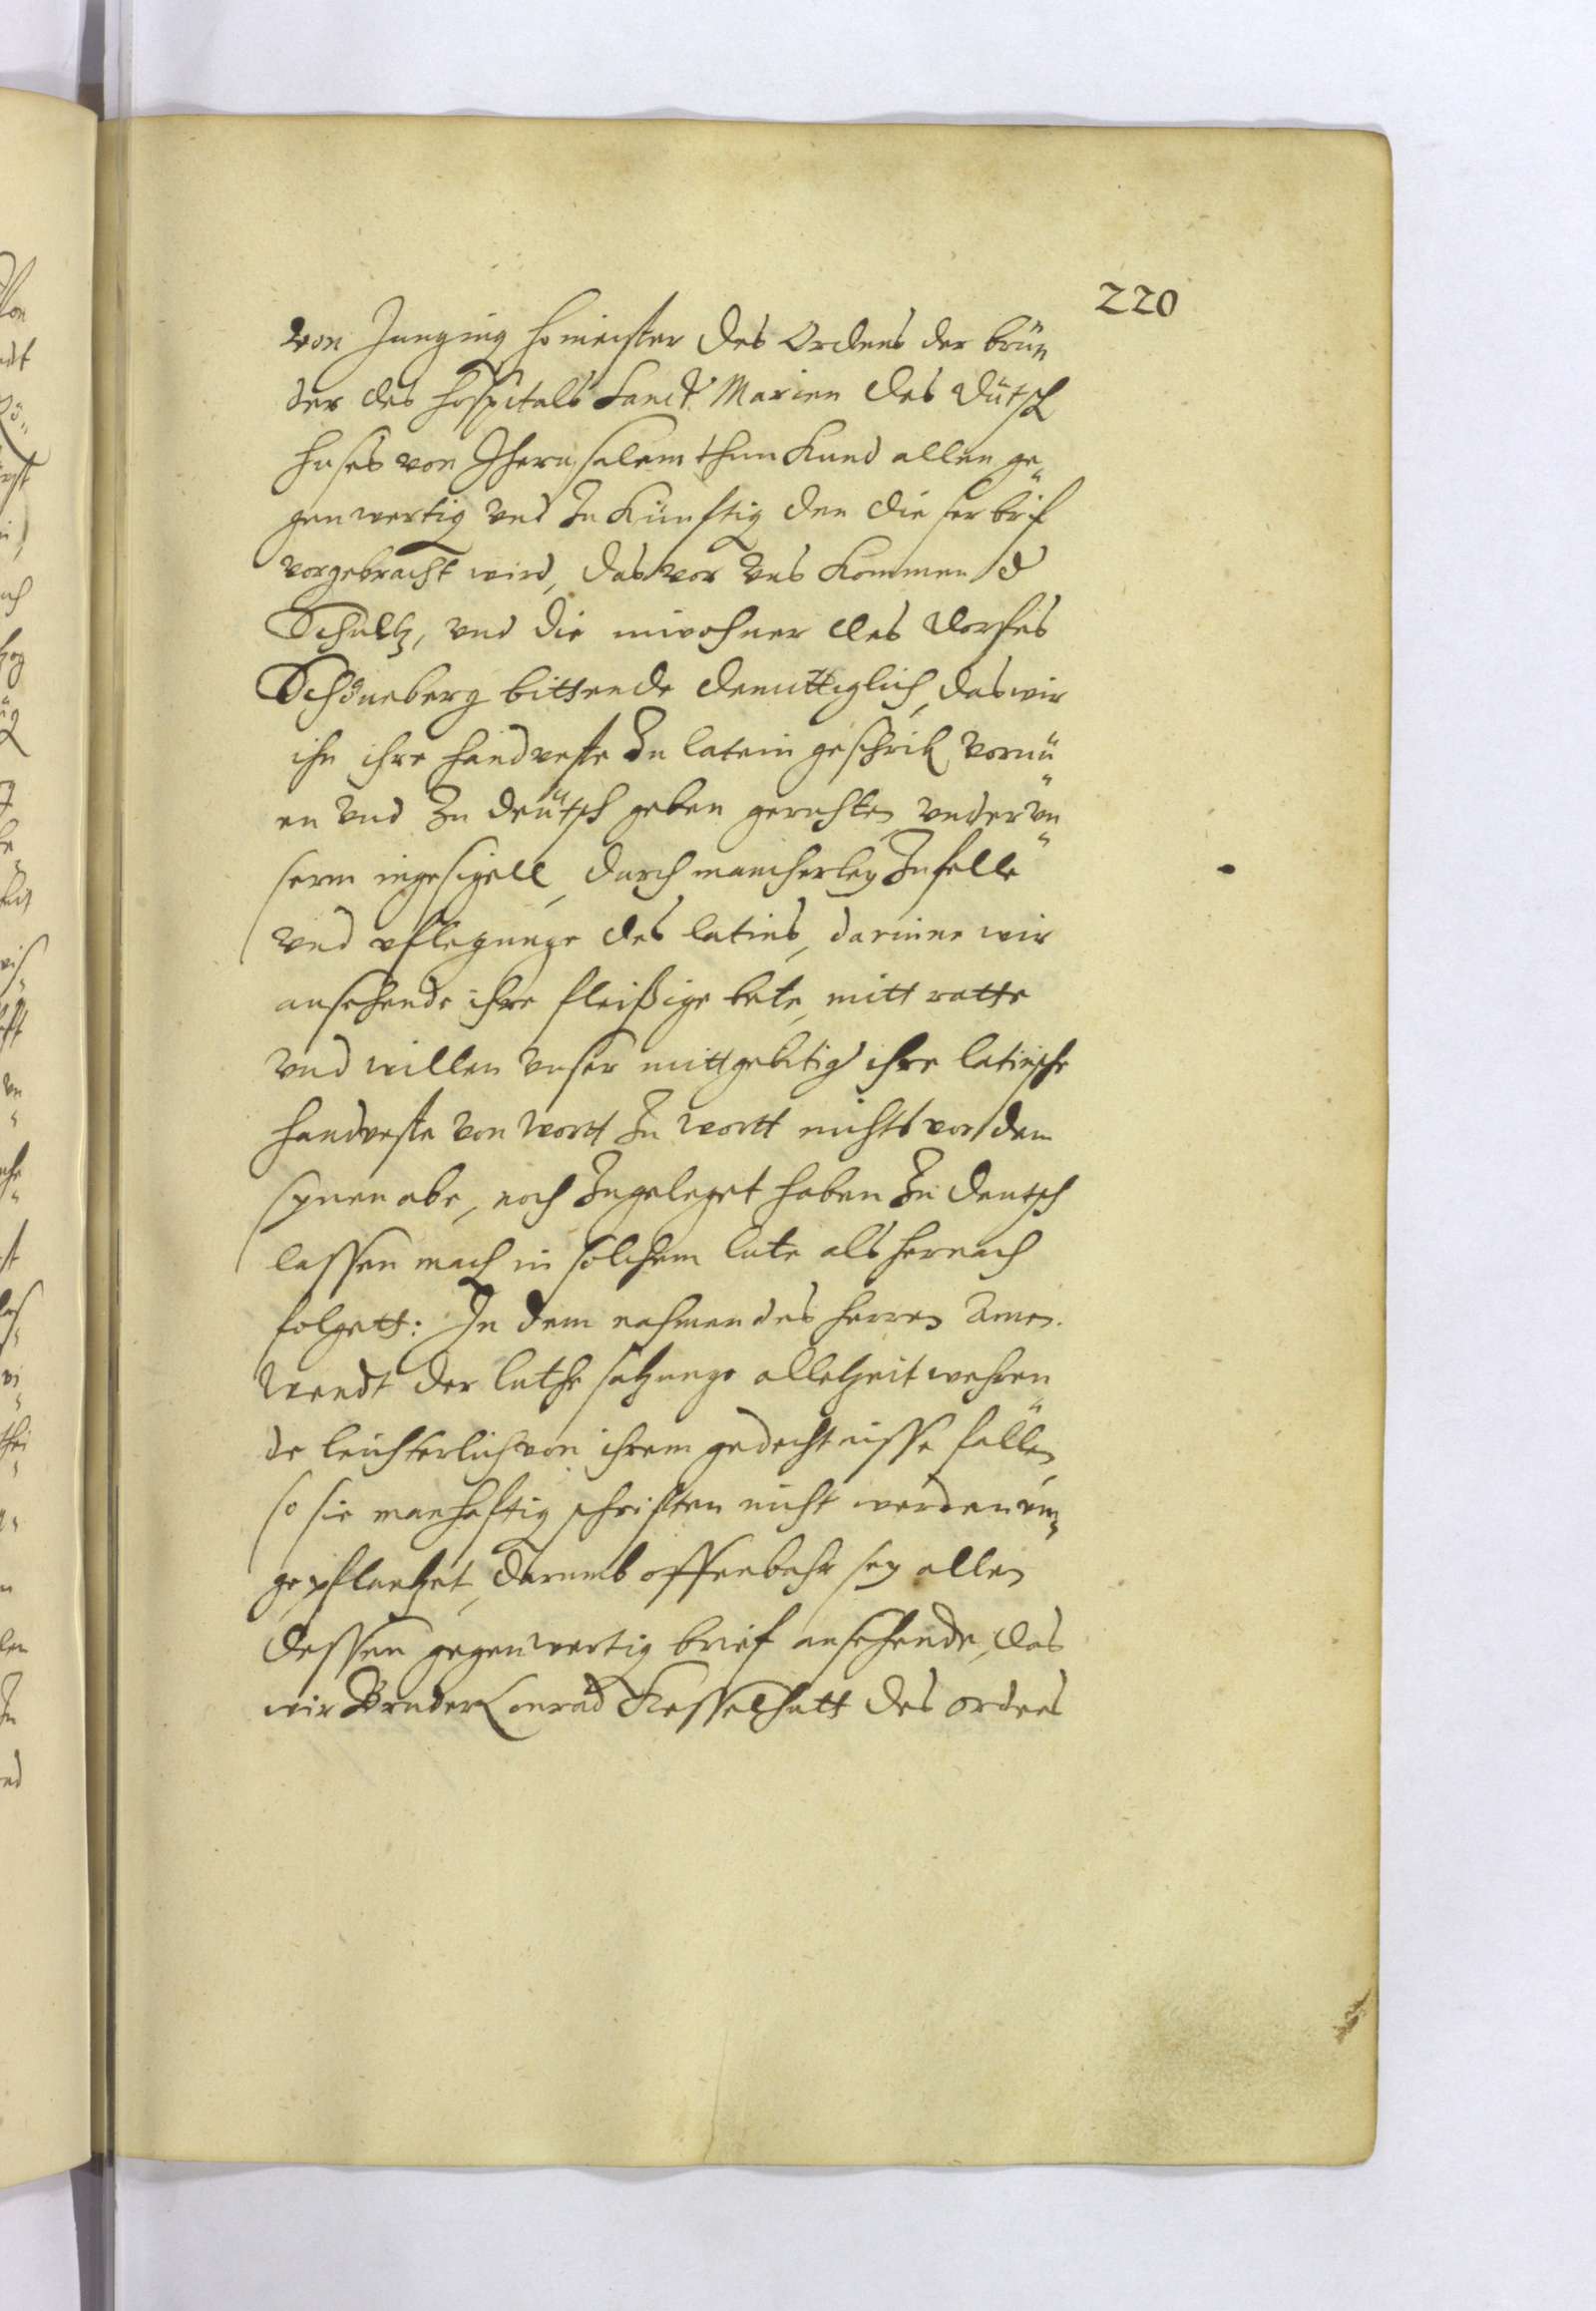 220
von Junging homeister des Ordens der brün
der des hospitals Sanct Marien des dütsch
huses von Jherusalem thun kund allen ge¬
genwertig vnd zu künfftig den die ser brif
vorgebracht wird, das vor vns kommen d
Schultz, vnd die inwohner des dorfes
Schöneberg bittende demuttiglich, das wir
ihn ihre handveste zu latein geschrib vornü¬
en vnd zu deütsch geben geruchten vnder vn¬
serm ingesigell, durch mancherley zufelle
vnd pflegunge des latins, darinne wir
ansehende ihre fleißige bete, mitt ratte
vnd willen vnser mittgebitig ihre latinsche
handveste von wortt zu wortt nichts vor dem
synnen abe, noch zugeleget haben zu deutsch
lassen mach in solchem lute als hernach
folgett: In dem nahmen des herren Amen.
Wendt der luthe satzunge alletzeit wehren¬
de leichterlich von ihrem gedechtnisse fallen,
so sie manhaftig schriften nicht werden ein¬
gepflantzet, darumb offenbahr sey allen
dessen gegenwertig brief ansehende, das
wir Bruder Conrad Kesselhutt des ordens